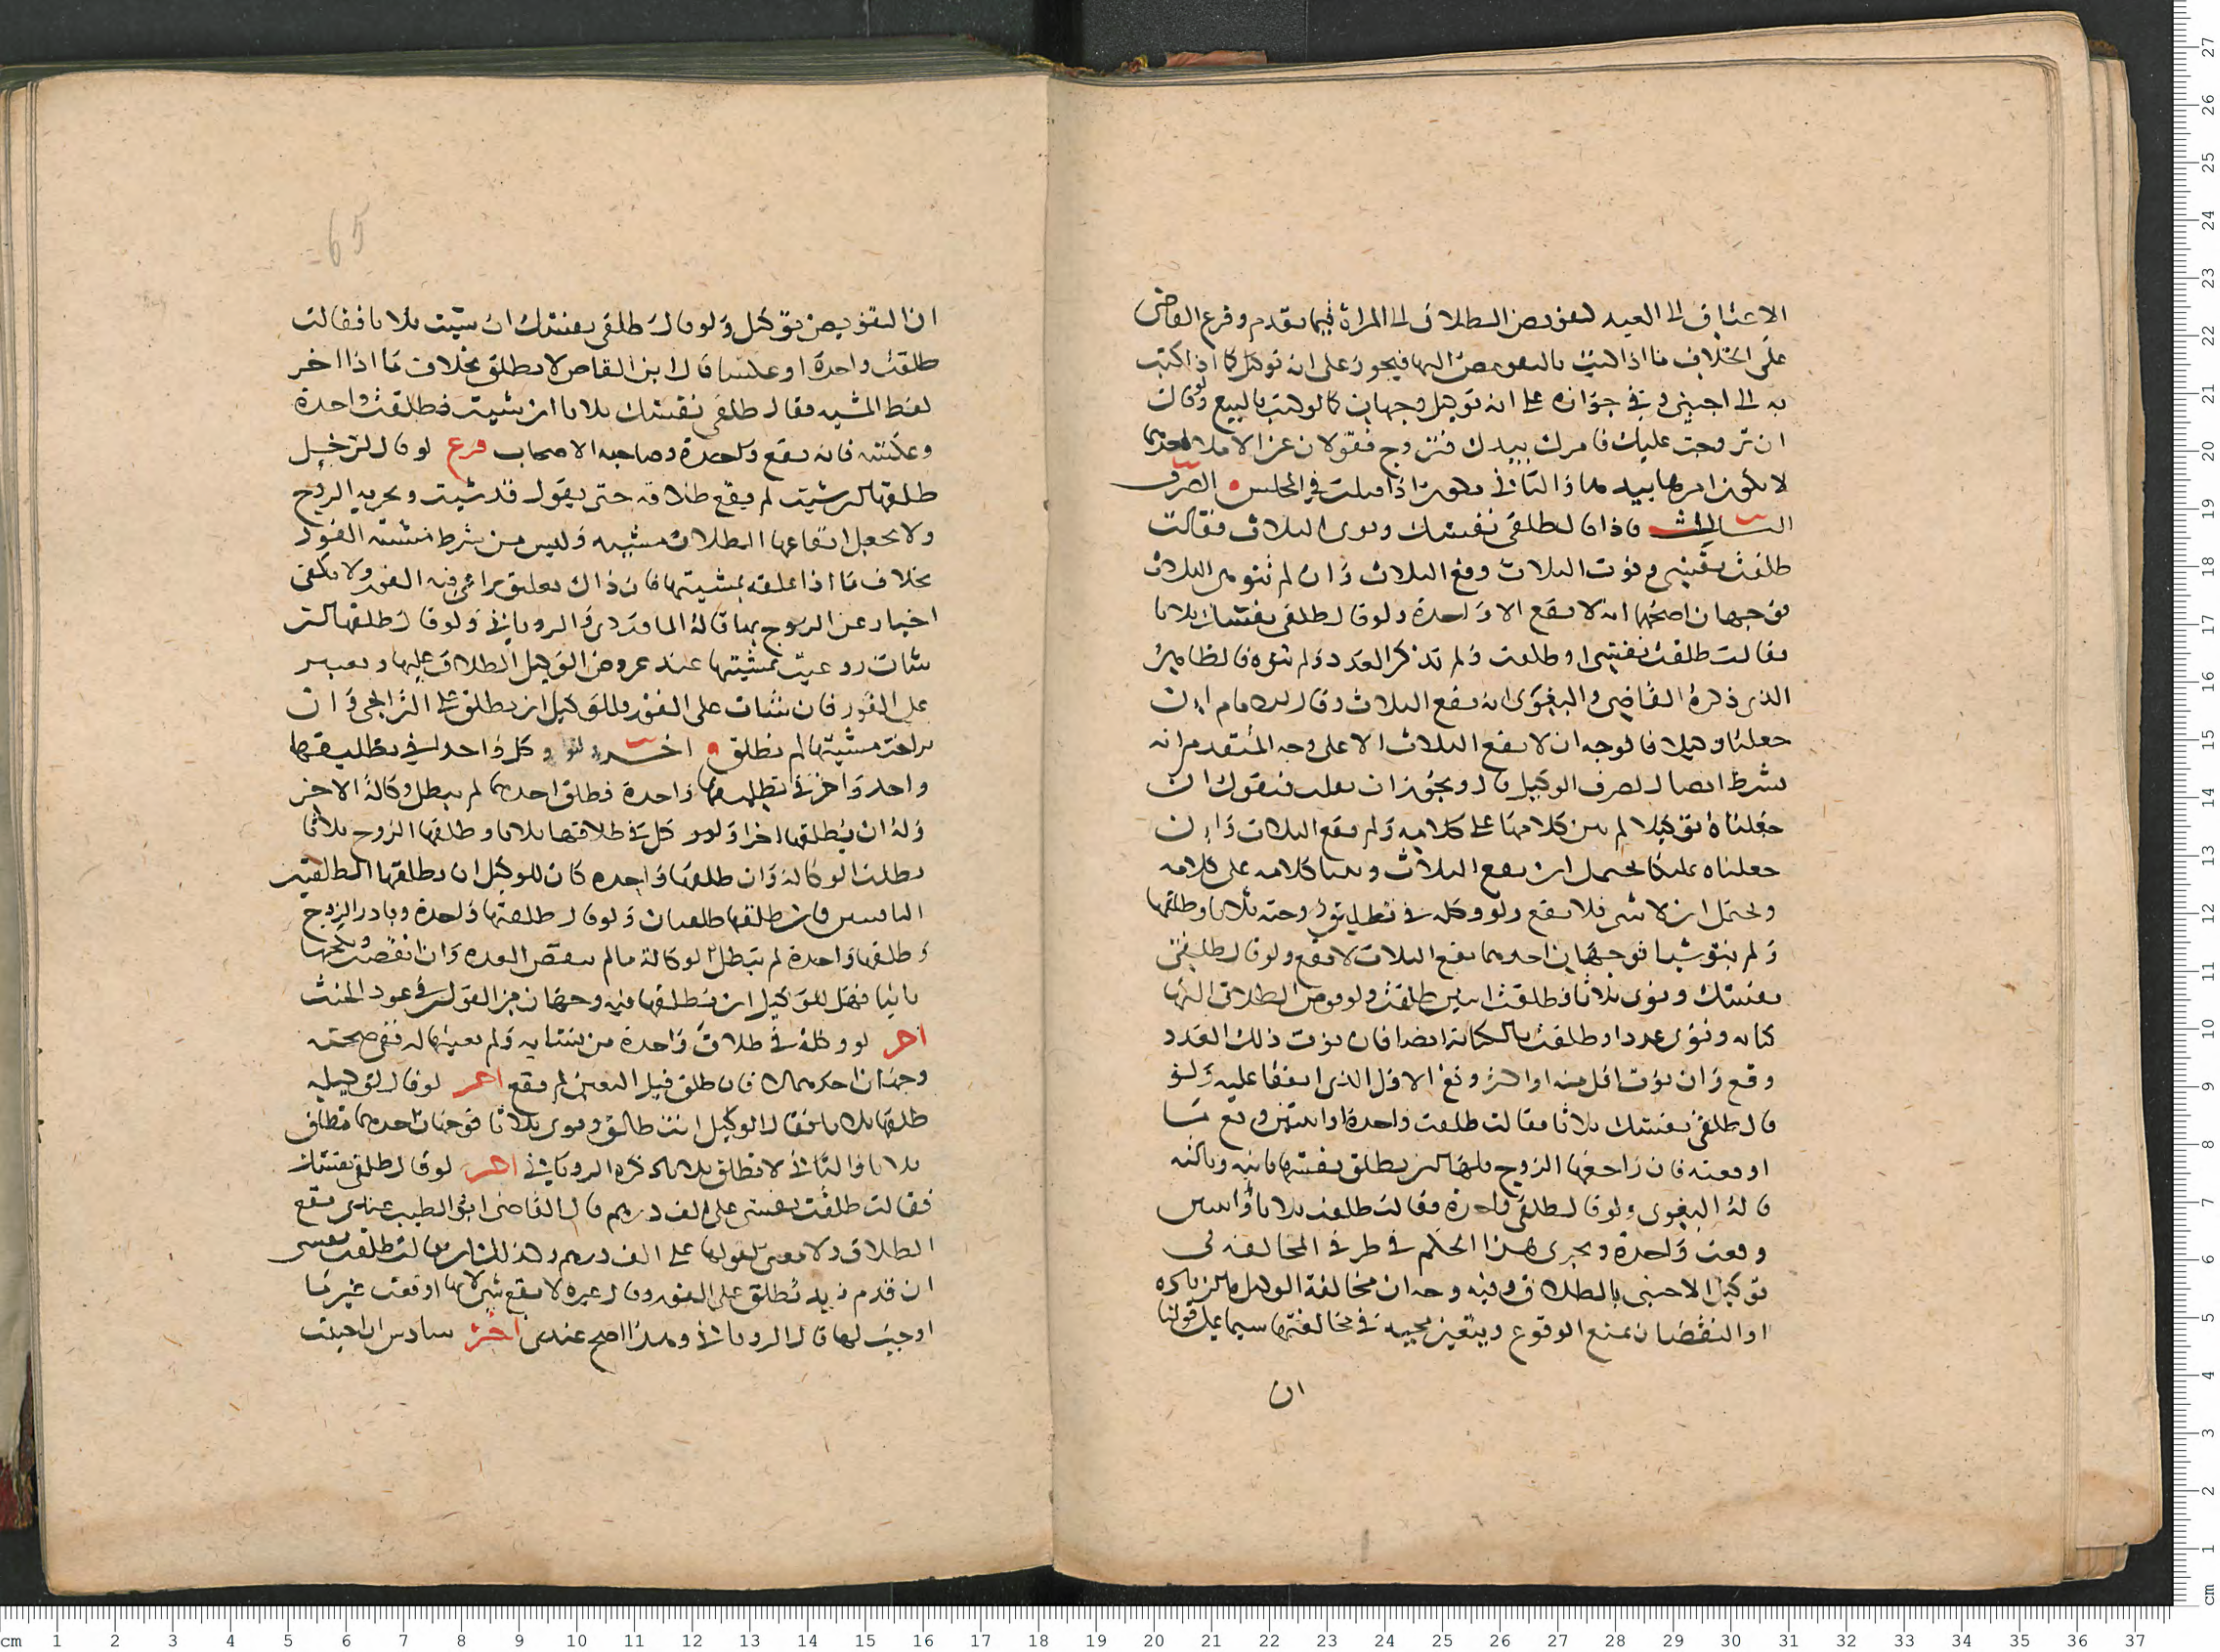 الاعتاق الى العبد لتفويض الطلاق الى المراة فيما تقدم وفرع القاضى
على الخلاف ما اذا كتب بالتفويض اليها فيجوز على انه توكيل كما اذا كتب
به الى اجنبى وفى جوازه على انه توكيل وجهان كما لو كتب بالبيع ولو قالت
ان تزوجت عليك فامرك بيدك فتزوج فقولان عن الاملا احدهما
لا يكون امرها بيدها والثانى يكون اذا قبلت فى المجلس الطرف
الثالث فاذا قال طلقى نفسك ونوى الثلاث فقالت
طلقت نفسى ونوت الثلاث وقع الثلاث وان لم تنو هى الثلاث
فوجهان اصحهما انه لا يقع الا واحدة ولو قال طلقى نفسك ثلاثا
فقالت طلقت نفسى او طلقت ولم تذكر العدد ولم تنوه فالظاهر
الذى ذكره القاضى والبغوى انه يقع الثلاث وقال الامام ان
جعلناه توكيلا فالوجه ان لا يقع الثلاث الا على وجه المتقدم انه
يشترط اتصال تصرف الوكيل قال ويجوز ان يقلب فنقول ان
جعلناه توكيلا لم يبن كلامها على كلامه ولم يقع الثلاث وان
جعلناه تمليكا يحتمل ان يقع الثلاث وبنا كلامه على كلامه
ويحتمل ان لا يبنى فلا يقع ولو وكله فى تطليق زوجته ثلاثا وطلقها
ولم ينو شيا فوجهان احدهما يقع الثلاث لا يقع ولو قال طلقى
نفسك ونوى ثلاثا فطلقت اثنين طلقت ولو فوض الطلاق اليها
كناية ونوى عددا وطلقت بالكناية ايضا فان نوت ذلك العدد
وقع وان نوت اقل منه او اكثر وقع الاقل الذى اتفقا عليه ولو
قال طلقى نفسك ثلاثا فقالت طلقت واحدة او اثنتين وقع ما
اوقعته فان راجعها الزوج فلها ان تطلق نفسها ثانية وثالثة
قاله البغوى ولو قال طلقى واحدة فقالت طلقت ثلاثا او اثنتين
وقعت واحدة ويجرى هذا الحكم فى طرفى المخالفة فى
توكيل الاجنبى بالطلاق وفيه وجه ان مخالفة الوكيل بالزيادة
او النقصان تمنع الوقوع ويتعين مجيه فى مخالفتها سيما على قولنا
ان
ان التفويض توكيل ولو قال طلقى نفسك ان شئت ثلاثا فقالت
طلقت واحدة او عكسا قال ابن القاص لا تطلق بخلاف ما اذا اخر
لفظ المشية فقال طلقى نفسك ثلاثا ان شئت فطلقت واحدة
وعكسه فانه يقع واحدة وصاحبه الاصحاب فرع لو قال لرجل
طلقها ان شئت لم يقع طلاقه حتى يقول قد شئت ويخبر به الزوج
ولا يجعل ايقاعها الطلاق مشيه وليس من شرط مشيته الفور
بخلاف ما اذا علقه بمشيتها فان ذاك تعليق يراعى فيه الفور ولا يكفى
اخبار عن الزوج بها قاله الماوردى والرويانى ولو قال طلقها ان
شات روعيت مشيتها عند عروض الوكيل الطلاق عليها ويعتبر
على الفور فان شات على الفور وللوكيل ان يطلق على التراخى وان
تراخت مشيتها لم تطلق اخر لو وكل واحدا فى تطليقها
واحدة واخر فى تطليقها واحدة فطلق احدهما لم يبطل وكالة الاخر
وله ان يطلقها اخرى ولو وكل فى طلاقها ثلاثا وطلقها الزوج ثلاثا
بطلت الوكالة وان طلقها واحدة كان للوكيل ان يطلقها الطلقتين
الباقيتين فان طلقها طلقتان ولو قال طلقها واحدة وبادر الزوج
وطلقها واحدة لم تبطل الوكالة ما لم تنقض العدة وان انقضت ونكحها
ثانيا فهل للوكيل ان يطلقها فيه وجهان من القولين فى عود الحنث
اخر لو وكله فى طلاق واحدة من نسائه ولم يعينها له ففى صحته
وجهان احدهما لا فان طلق قبل التعيين لم يقع اخر لو قال لوكيله
طلقها ثلاثا فقال الوكيل انت طالق ونوى ثلاثا فوجهان احدهما تطلق
ثلاثا والثانى لا تطلق ثلاثا ذكره الرويانى اخر لو قال طلقى نفسك
فقالت طلقت نفسى على الف درهم قال القاضى ابو الطيب عندى يقع
الطلاق ولا معنى لقولها على الف درهم وكذلك ان قالت طلقت نفسى
ان قدم زيد تطلق على الفور وقال غيره لا يقع شى لانها اوقعت غير ما
اوجب لها قال الرويانى وهذا اصح عندى اخر